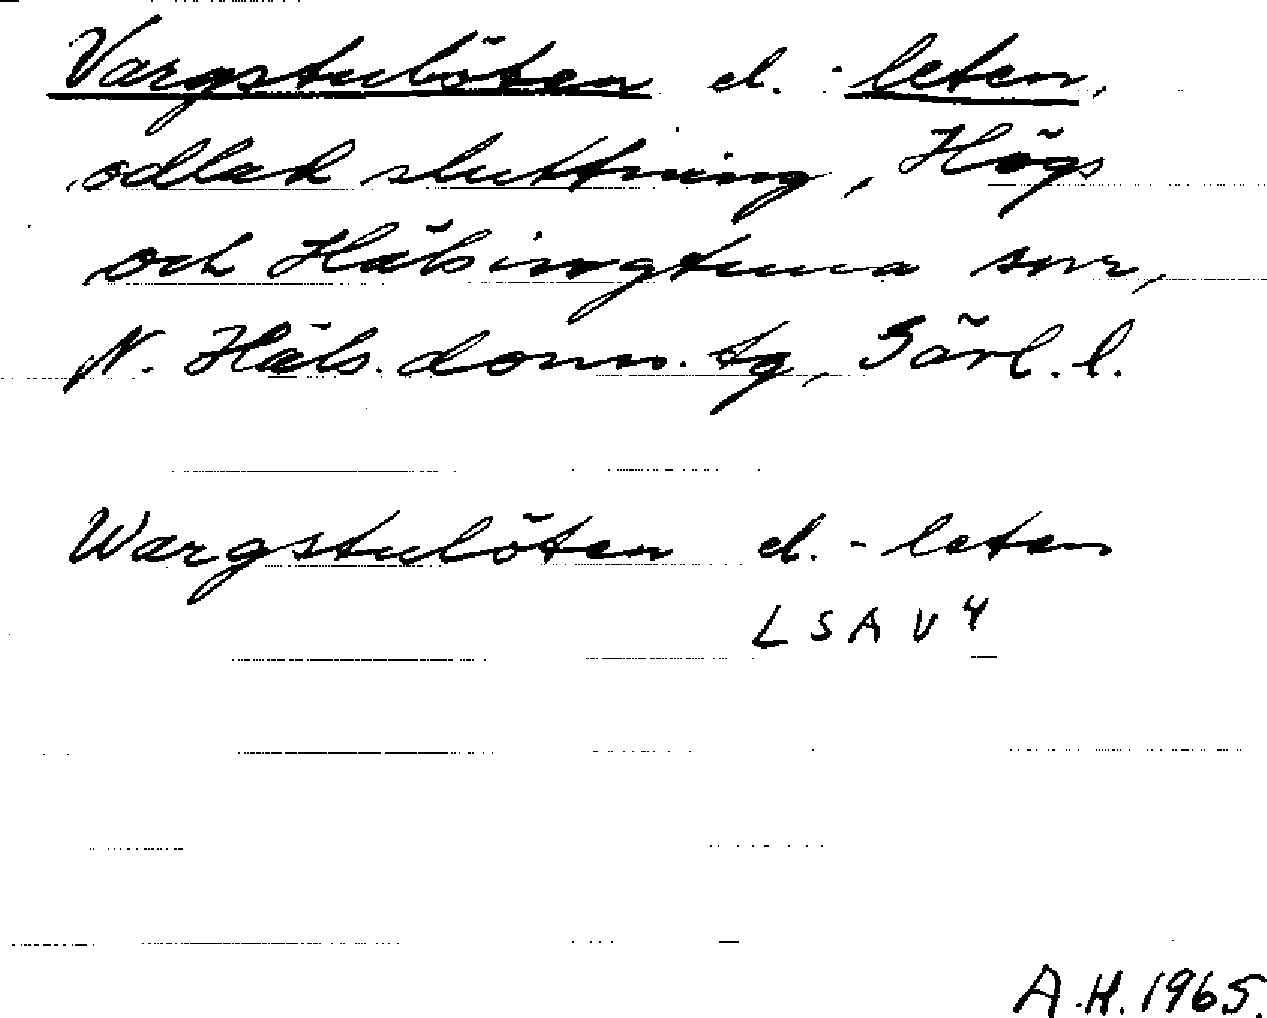 Vargstulöten el. -leten,
odlad sluttning, Högs
och Hälsingtuna snr,
N. Häls. doms. tg, Gävl. l.
Wargstulöten el. -leten
LSA V 4
A.H. 1965.